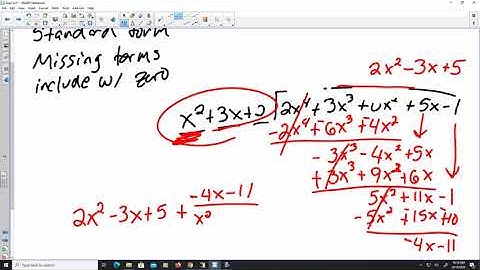 Standard form
Missing terms
include w/ zero
2x² -3x +5
x² +3x +2 2x⁴ + 3x³ + 0x² + 5x - 1
-2x⁴ + -6x³ + -4x²
-3x³ -4x² +5x
+3x³ + 9x² + 6x
5x² + 11x - 1
-5x² + -15x + -10
-4x - 11
2x² - 3x + 5 + -4x - 11
x²